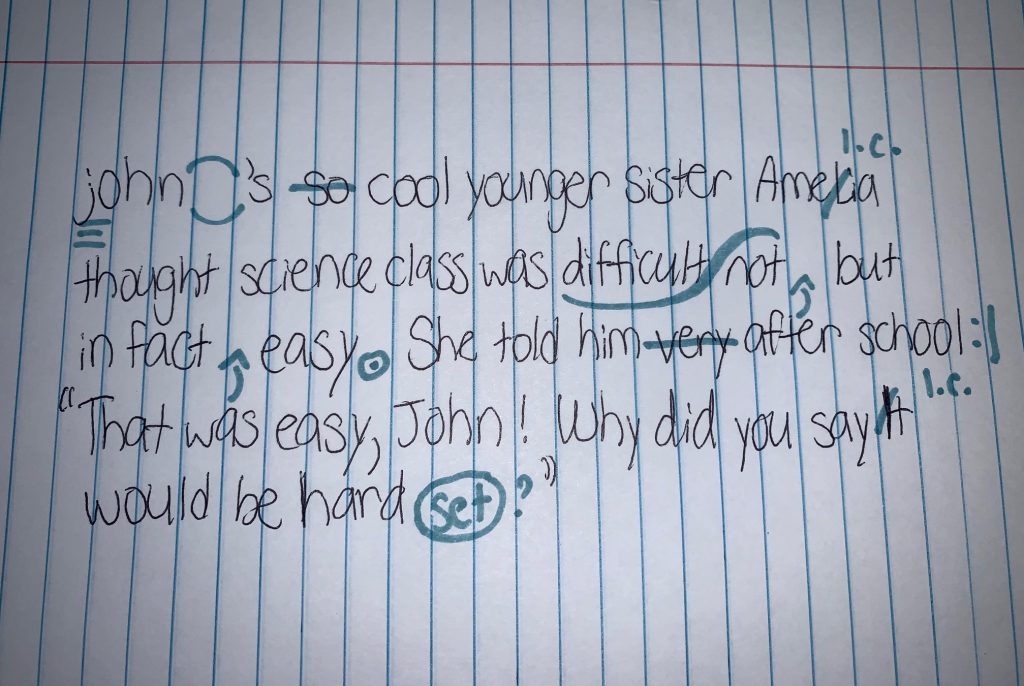 l.c.
john's so cool younger sister AmeLia
thought science class was difficult not, but
in fact, easy. She told him very after school:
"That was easy, John! Why did you say It l.c.
would be hard set?"